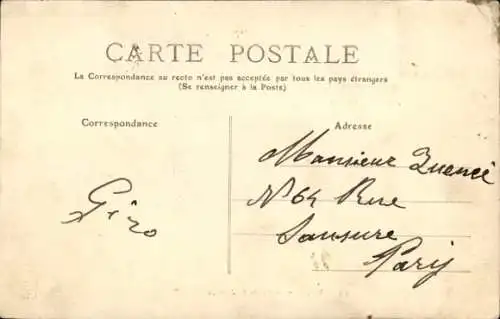 CARTE POSTALE
La Correspondance au recto n'est pas acceptée par tous les pays étrangers
(Se renseigner à la Poste)
Correspondance
Adresse
Monsieur Quencé
N° 64 Rue
Sausure
Paris